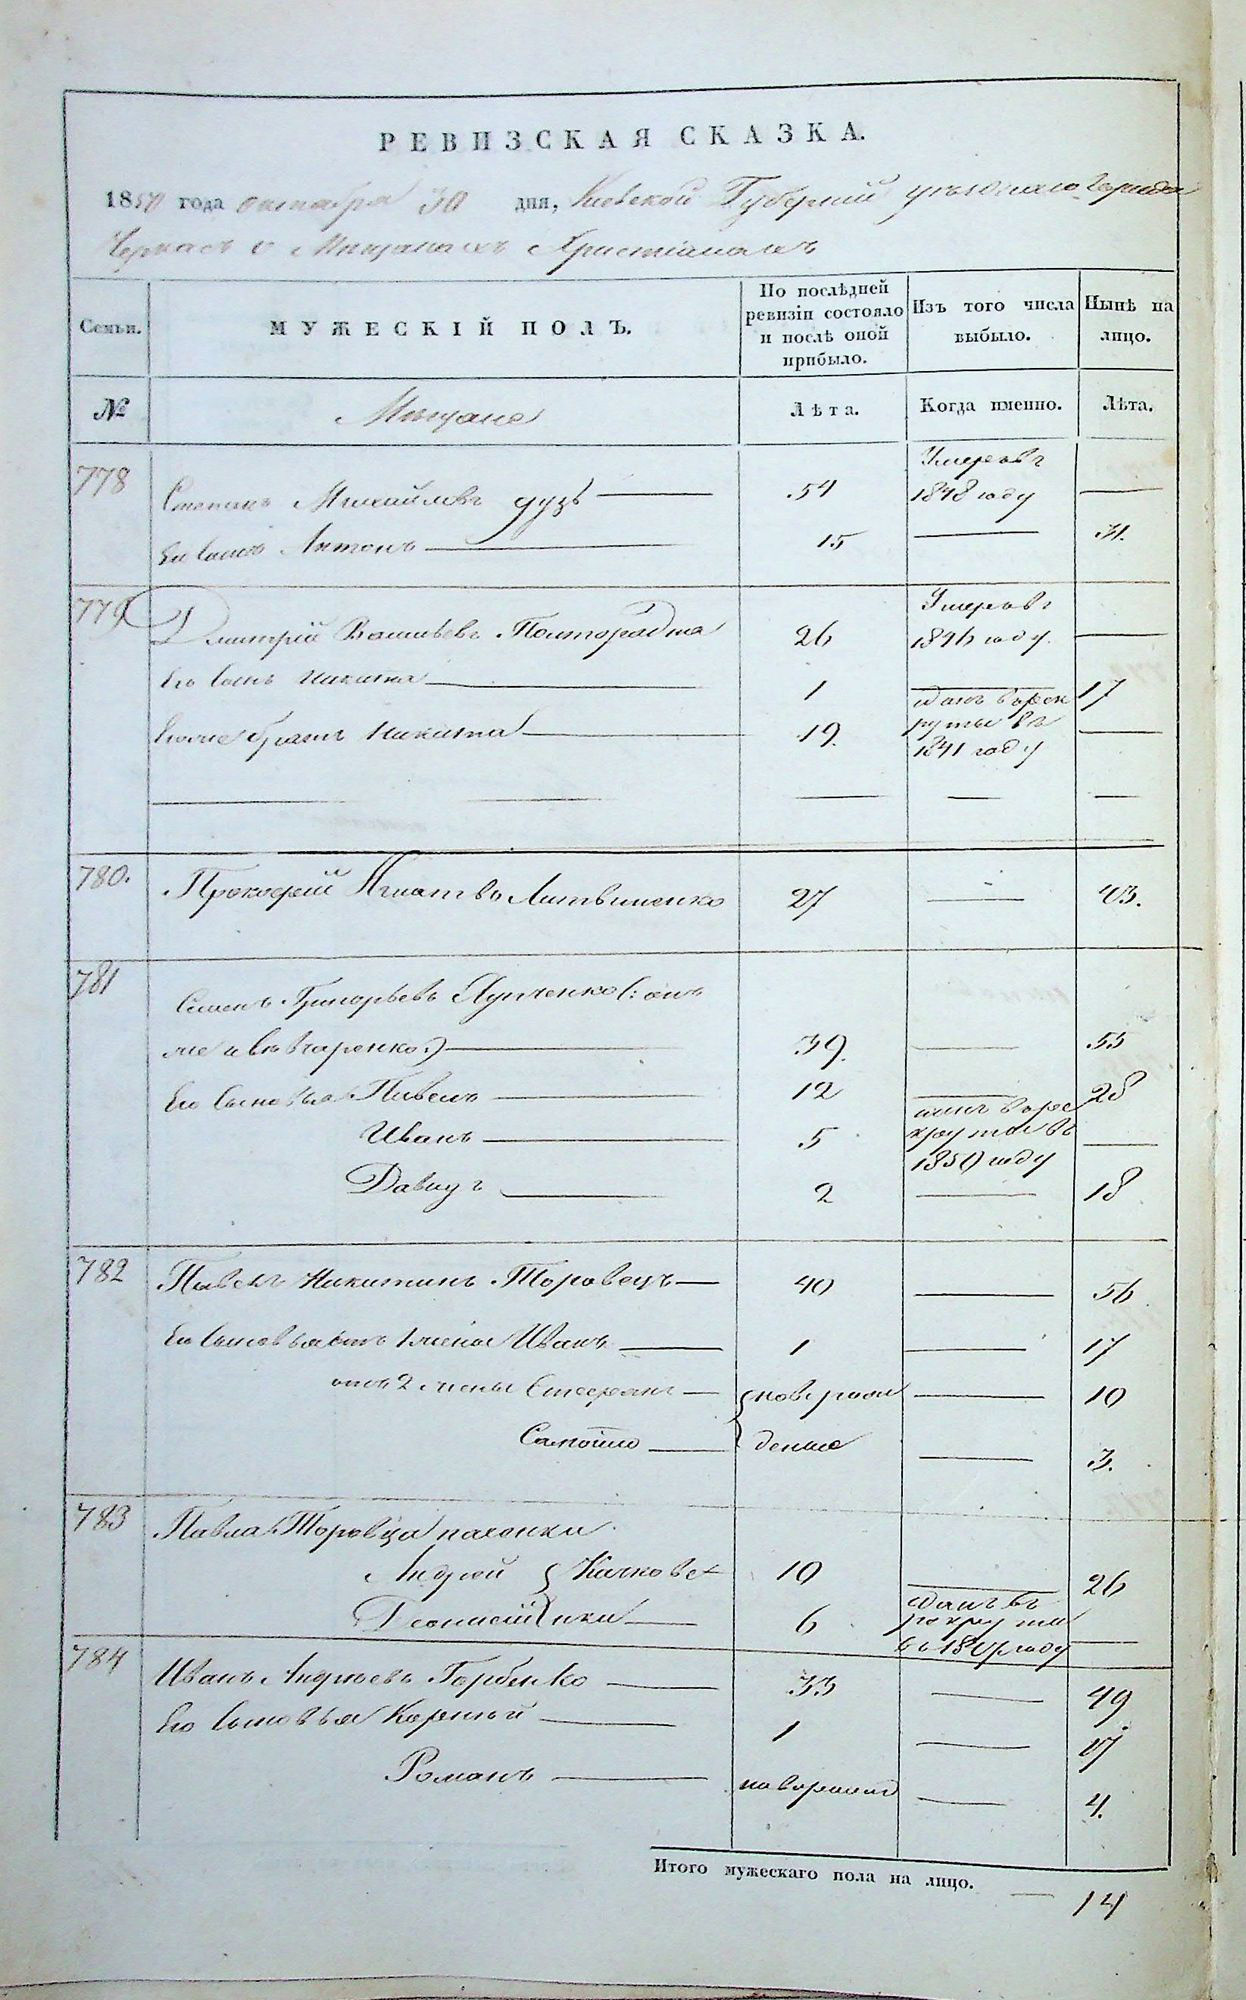 РЕВИЗСКАЯ СКАЗКА.
1850 года октября 30 дня, Киевской Губерніи уѣзднаго Города
Черкасъ о Мѣщанахъ Христіянахъ
Семьи.
МУЖЕСКІЙ ПОЛЪ.
По послѣдней ревизіи состояло и послѣ оной прибыло.
Изъ того числа выбыло.
Нынѣ на лицо.
№
Мѣщане
Лѣта.
Когда именно.
Лѣта.
778
Степанъ Михайловъ Дузь — 54 Умеръ въ 1848 году —
Его Сынъ Антонъ — 15 — 31.
779
Дмитрій Васильевъ Полторадня 26 Умеръ въ 1846 году. —
Его Сынъ Никита — 1 — 17
Его же братъ Никита — 19. сданъ въ рекруты въ 1841 году —
780.
Прокофій Игнатовъ Литвиненко 27 — 43.
781
Семенъ Григорьевъ (: онъ
же и Вивчаренко :) — 39. — 55
Его Сыновья Павелъ — 12 — 28
Иванъ — 5 въ рекруты въ 1850 году —
Давидъ — 2 — 18
782
Павелъ Никитинъ Торовецъ — 40 — 56
Его Сыновья отъ 1 жены Иванъ — 1 — 17
отъ 2 жены Стефанъ — новорож — 10
Самойло — денные — 3.
783
Павла Торовца пасынки
Андрей 10 — 26
6 сданъ въ рекруты —
784
Иванъ Андреевъ Горбенко — 33 — 49
Его Сыновья Корній — 1 — 17
Романъ — новорожд — 4.
Итого мужескаго пола на лицо. — 14